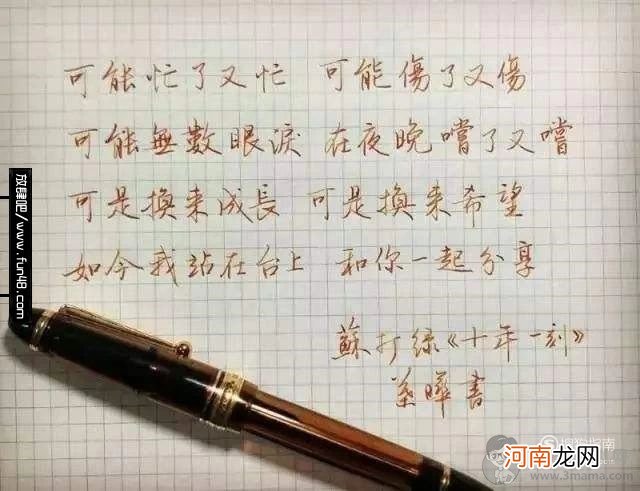 可能忙了又忙 可能傷了又傷
可能無數眼淚 在夜晚嚐了又嚐
可是換来成長 可是換来希望
如今我站在台上 和你一起分享
蘇打綠《十年一刻》
葉曄書
放肆吧/www.fun48.com
搜狗指南
河南龙网
www.3mama.com